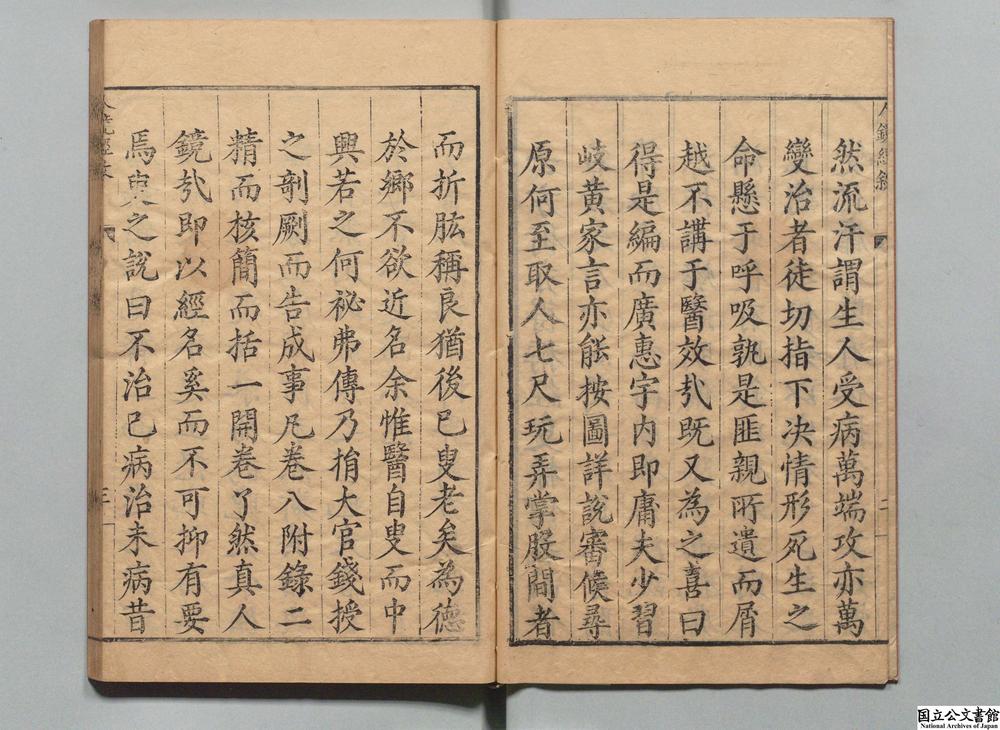 人鏡經敘
二
然流汗謂生人受病萬端攻亦萬
變治者徒切指下决情形死生之
命懸于呼吸孰是匪親所遺而屑
越不講于醫效㢤既又為之喜曰
得是編而廣惠字内即庸夫少習
岐黄家言亦能按圖詳說審候尋
原何至取人七尺玩弄掌股間者
而折肱稱良猶後已叟老矣為德
於鄉不欲近名余惟醫自叟而中
興若之何祕弗傳乃捐大官錢授
之剞劂而告成事凡卷八附錄二
精而核簡而括一開卷了然真人
鏡㢤即以經名奚而不可抑有要
焉叟之說曰不治已病治未病昔
三
国立公文書館
National Archives of Japan